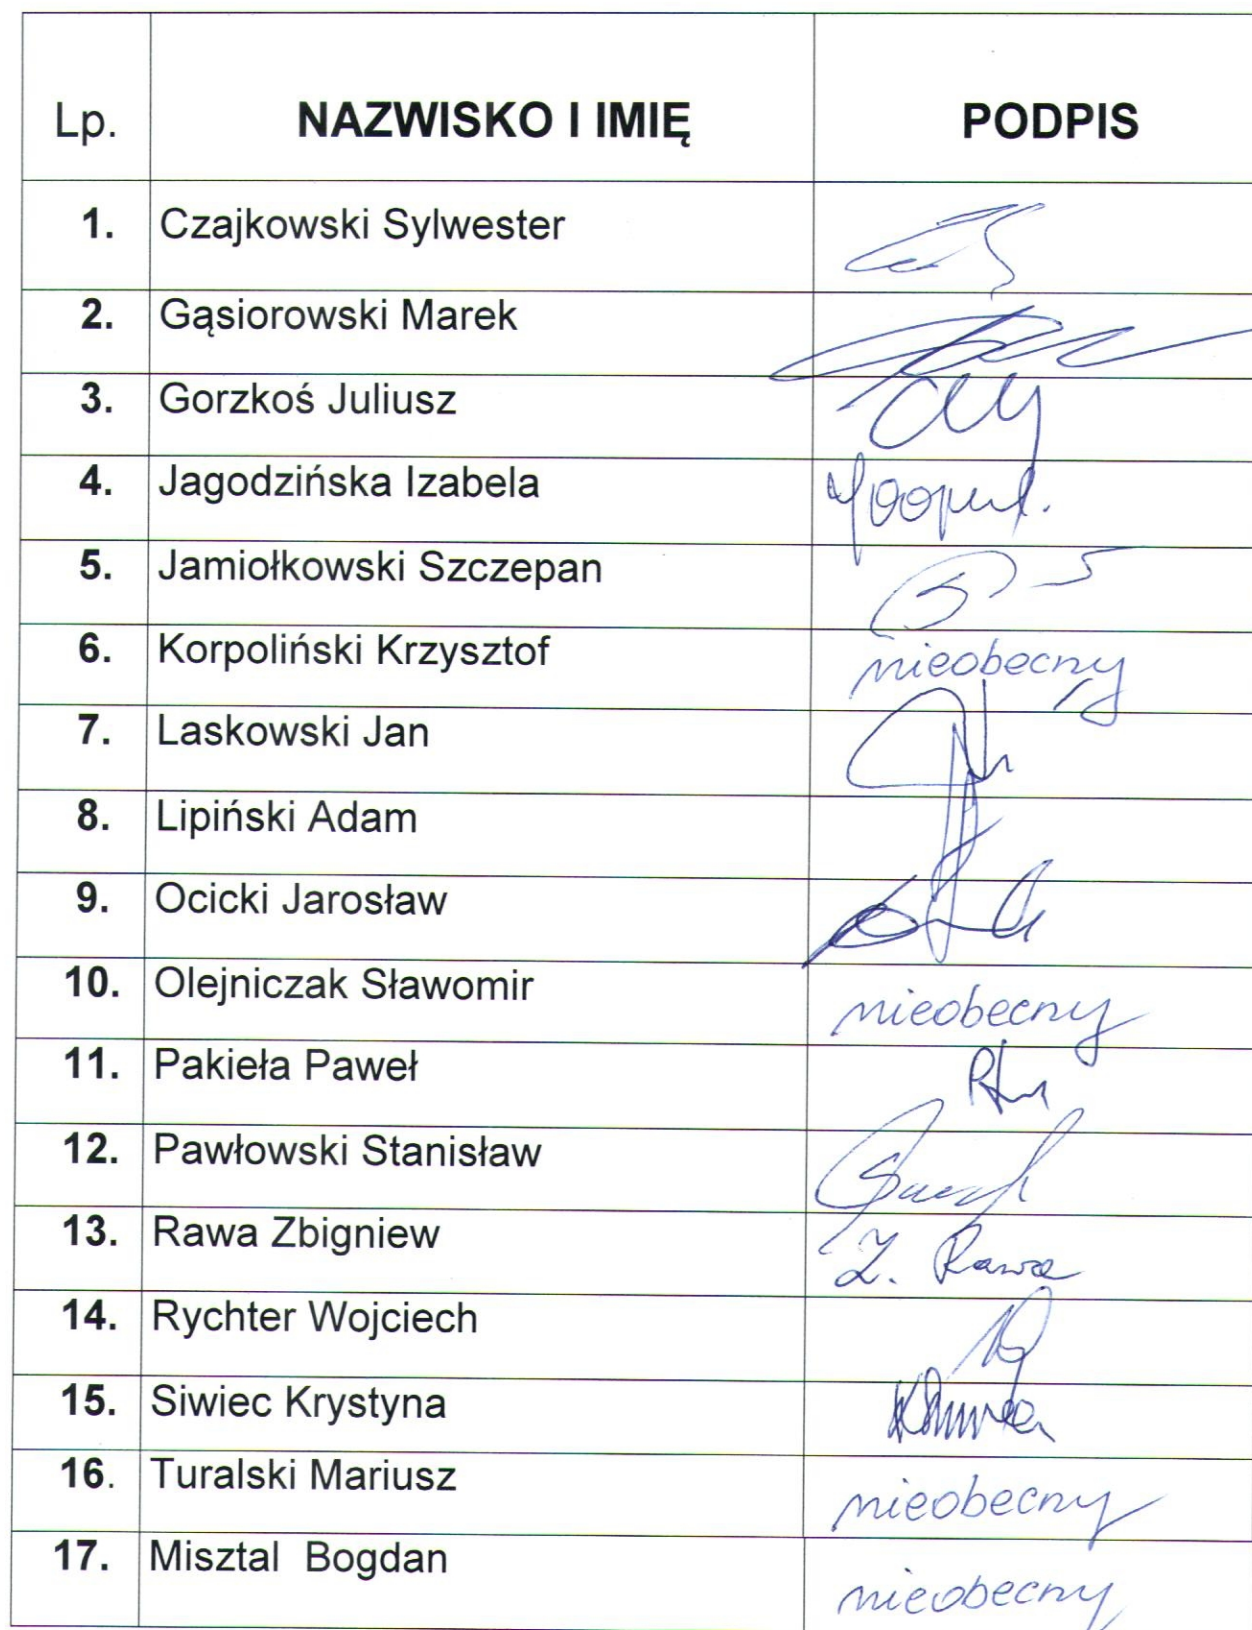 Lp. NAZWISKO I IMIĘ PODPIS
1. Czajkowski Sylwester
2. Gąsiorowski Marek
3. Gorzkoś Juliusz
4. Jagodzińska Izabela
5. Jamiołkowski Szczepan
6. Korpoliński Krzysztof nieobecny
7. Laskowski Jan
8. Lipiński Adam
9. Ocicki Jarosław
10. Olejniczak Sławomir nieobecny
11. Pakieła Paweł
12. Pawłowski Stanisław
13. Rawa Zbigniew Z. Rawa
14. Rychter Wojciech
15. Siwiec Krystyna
16. Turalski Mariusz nieobecny
17. Misztal Bogdan nieobecny